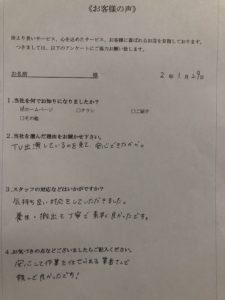 《お客様の声》
日より良いサービス、心を込めたサービス、お客様に喜ばれるお店を目指しております。
つきましては、以下のアンケートにご協力お願い致します。
お名前 様 2年1月29日
1.当社を何でお知りになりましたか?
☑ホームページ □チラシ □ご紹介
□その他
2.当社を選んだ理由をお聞かせ下さい。
TV出演しているのを見て、安心できたから。
3.スタッフの対応などはいかがですか?
気持ち良い対応をしていただきました。
養生・搬出も丁寧で素早く良かったです。
4.お気づきの点などございましたらご記入ください。
安心して作業を任せられる業者さんで
本当に良かったです!